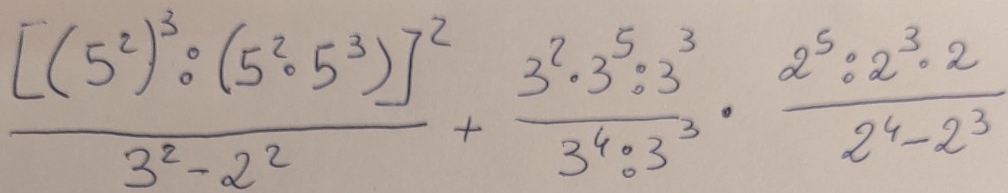 [(5²)³:(5²·5³)]² / 3²-2² + 3²·3⁵:3³ / 3⁴:3³ · 2⁵:2³·2 / 2⁴-2³